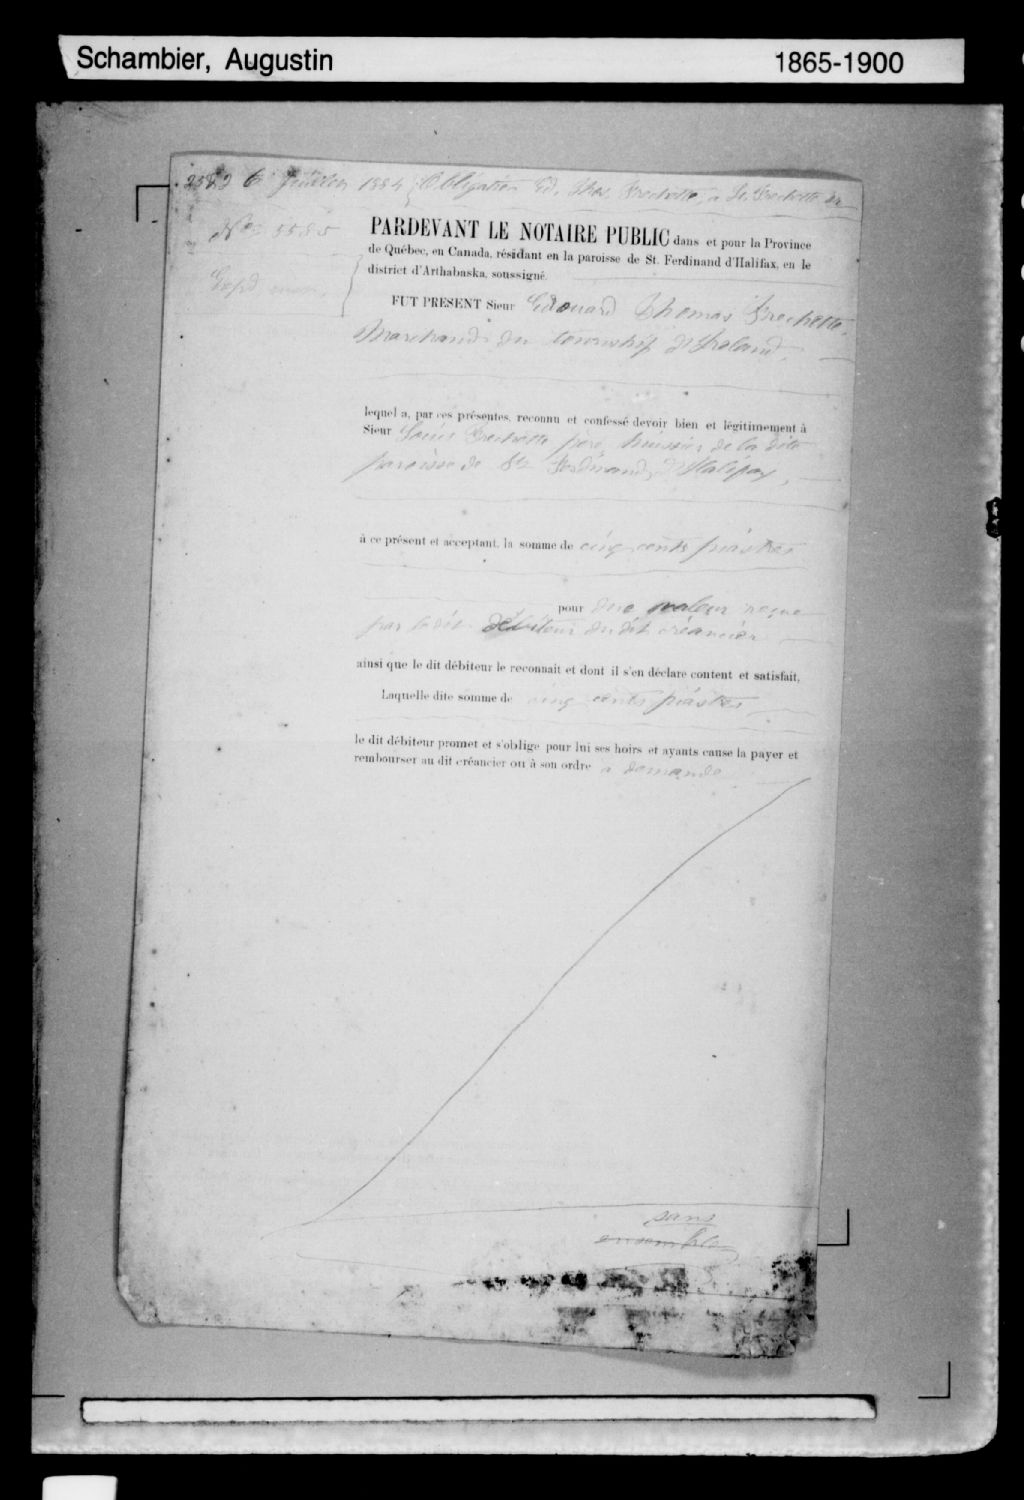 Schambier, Augustin 1865-1900
1884 Obligation Ed. Thos. Frechette, à Ls. Frechette
No 5585
PARDEVANT LE NOTAIRE PUBLIC dans et pour la Province
de Québec, en Canada, résidant en la paroisse de St. Ferdinand d'Halifax, en le
district d'Arthabaska, soussigné.
FUT PRESENT Sieur Edouard Thomas Frechette,
Marchand du township d'Ireland,
lequel a, par ces présentes, reconnu et confessé devoir bien et légitimement à
Sieur Louis Frechette père, huissier de la dite
paroisse de St Ferdinand d'Halifax,
à ce présent et acceptant, la somme de cinq cents piastres
pour due valeur reçue
par le dit débiteur du dit créancier
ainsi que le dit débiteur le reconnait et dont il s'en déclare content et satisfait,
Laquelle dite somme de cinq cents piastres
le dit débiteur promet et s'oblige pour lui ses hoirs et ayants cause la payer et
rembourser au dit créancier ou à son ordre à demande
sans
ensemble